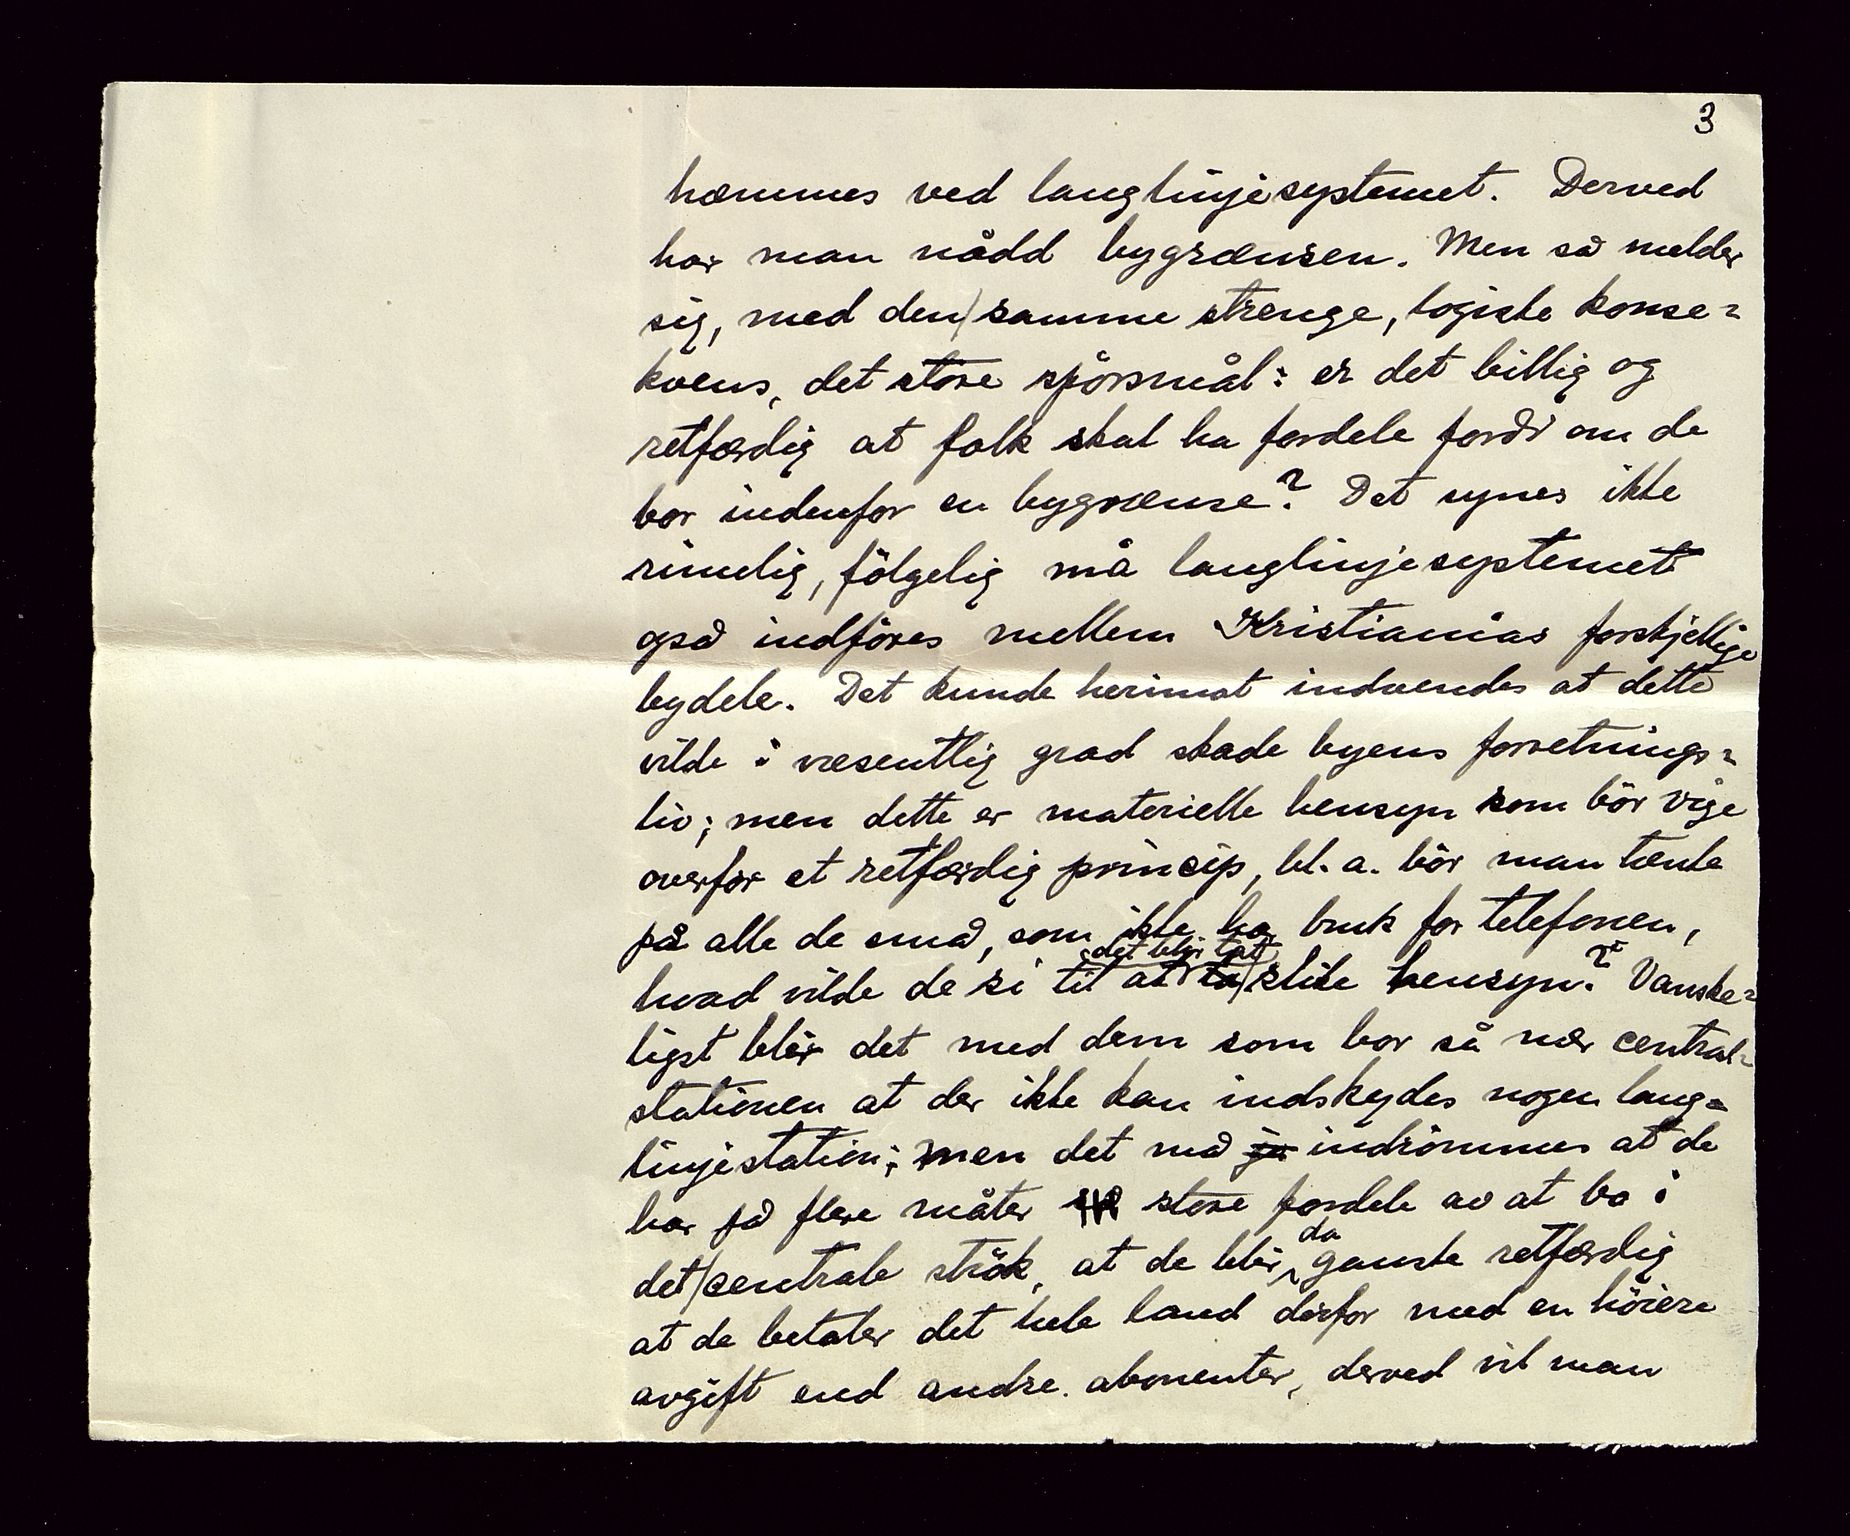 3
hæmmes ved langlinjesystemet. Derved
har man nådd bygrænsen. Men så melder
sig, med den samme strenge, logiske konse=
kvens, det store spörsmål: er det billig og
retfærdig at folk skal ha fordele fordi om de
bor indenfor en bygrænse? Det synes ikke
rimelig, fölgelig må langlinjesystemet
også indföres mellem Kristianias forskjellige
bydele. Det kunde herimot indvendes at dette
vilde i væsentlig grad skade byens forretnings=
liv; men dette er materielle hensyn som bör vige
overfor et retfærdig princip, bl. a. bör man tænke
på alle de små, som ikke har bruk for telefonen,
det blir tat
hvad vilde de si til at ta slike hensyn? Vanske=
ligst blir det med dem som bor så nær central=
stationen at der ikke kan indskydes nogen lang=
linjestation; men det må ja indrömmes at de
har på flere måter store fordele av at bo i
da
det centrale strök, at de blir ganske retfærdig
at de betaler det hele land derfor med en höiere
avgift end andre abonenter, derved vil man